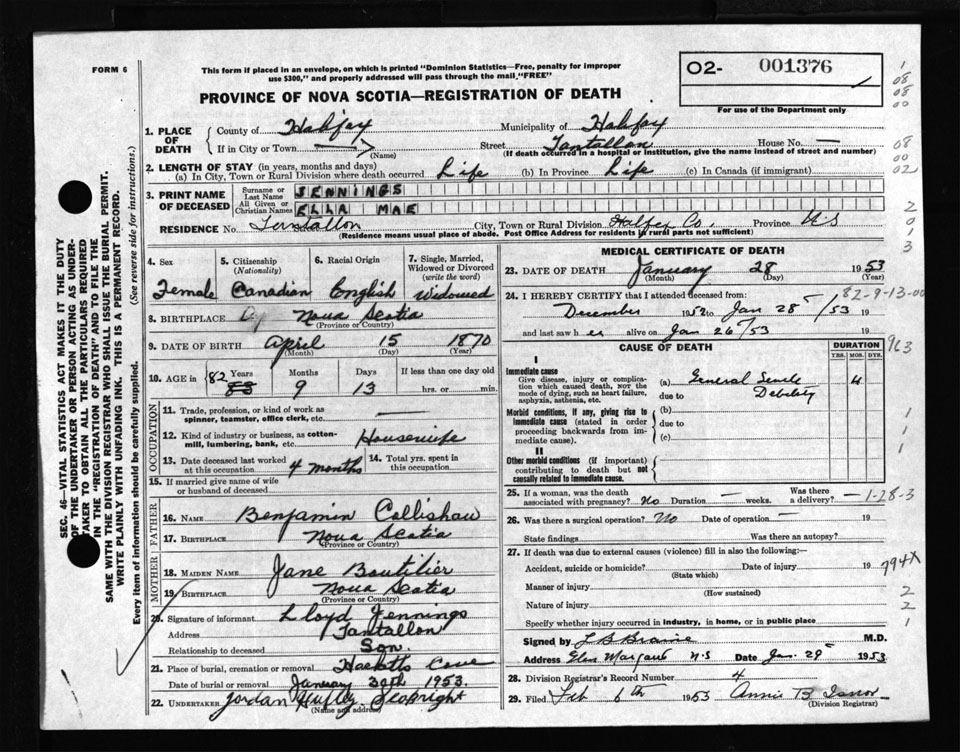 FORM 6
This form if placed in an envelope, on which is printed "Dominion Statistics—Free, penalty for improper
use $300," and properly addressed will pass through the mail "FREE"
PROVINCE OF NOVA SCOTIA—REGISTRATION OF DEATH
02- 001376
For use of the Department only
1. PLACE OF DEATH
County of Halifax Municipality of Halifax
If in City or Town — Street Tantallon House No. —
(Name) (If death occurred in a hospital or institution, give the name instead of street and number)
2. LENGTH OF STAY (in years, months and days)
(a) In City, Town or Rural Division where death occurred Life (b) In Province Life (c) In Canada (if immigrant)
3. PRINT NAME OF DECEASED
Surname or Last Name JENNINGS
All Given or Christian Names ELLA MAE
RESIDENCE No. Tantallon City, Town or Rural Division Halifax Co. Province N.S
(Residence means usual place of abode. Post Office Address for residents in rural parts not sufficient)
4. Sex
Female
5. Citizenship
(Nationality)
Canadian
6. Racial Origin
English
7. Single, Married, Widowed or Divorced
(write the word)
Widowed
8. BIRTHPLACE Nova Scotia
(Province or Country)
9. DATE OF BIRTH April 15 1870
(Month) (Day) (Year)
10. AGE in 82 Years Months Days If less than one day old
83 9 13 hrs. or min.
OCCUPATION
11. Trade, profession, or kind of work as
spinner, teamster, office clerk, etc. —
12. Kind of industry or business, as cotton-
mill, lumbering, bank, etc. Housewife
13. Date deceased last worked
at this occupation 4 months
14. Total yrs. spent in
this occupation
15. If married give name of wife
or husband of deceased
FATHER
16. NAME Benjamin Collishaw
17. BIRTHPLACE Nova Scotia
(Province or Country)
MOTHER
18. MAIDEN NAME Jane Boutilier
19. BIRTHPLACE Nova Scotia
(Province or Country)
20. Signature of informant Lloyd Jennings
Address Tantallon
Relationship to deceased Son.
21. Place of burial, cremation or removal Hacketts Cove
Date of burial or removal January 30th 1953.
22. UNDERTAKER Jordan
(Name and address)
MEDICAL CERTIFICATE OF DEATH
23. DATE OF DEATH January 28 1953
(Month) (Day) (Year)
24. I HEREBY CERTIFY that I attended deceased from: 82-9-13-00
December 1952 to Jan 28 /53 19
and last saw her alive on Jan 26 /53 19
963
CAUSE OF DEATH DURATION
YRS. MOS. DYS.
I
Immediate cause
Give disease, injury or complica-
tion which caused death, NOT the
mode of dying, such as heart failure,
asphyxia, asthenia, etc.
(a) General Senile 4
due to Debility
Morbid conditions, if any, giving rise to
immediate cause (stated in order
proceeding backwards from im-
mediate cause).
(b)
due to
(c)
II
Other morbid conditions (if important)
contributing to death but not
causally related to immediate cause.
25. If a woman, was the death Was there
associated with pregnancy? No Duration — weeks. a delivery? — 1-28-3
26. Was there a surgical operation? No Date of operation — 19
State findings Was there an autopsy?
27. If death was due to external causes (violence) fill in also the following:—
Accident, suicide or homicide? Date of injury 19 794X
(State which)
Manner of injury
(How sustained)
Nature of injury
Specify whether injury occurred in industry, in home, or in public place
Signed by M.D.
Address Glen Margaret N.S Date Jan. 29 1953
28. Division Registrar's Record Number 4
29. Filed Feb 6th 1953 Annie B
(Division Registrar)
SEC. 46—VITAL STATISTICS ACT MAKES IT THE DUTY
OF THE UNDERTAKER OR PERSON ACTING AS UNDER-
TAKER TO OBTAIN ALL THE PARTICULARS REQUIRED
IN THE "REGISTRATION OF DEATH" AND TO FILE THE
SAME WITH THE DIVISION REGISTRAR WHO SHALL ISSUE THE BURIAL PERMIT.
WRITE PLAINLY WITH UNFADING INK. THIS IS A PERMANENT RECORD.
Every item of information should be carefully supplied. (See reverse side for instructions.)
1
08
08
00
08
00
02
2
0
1
3
1
1
1
2
2
1